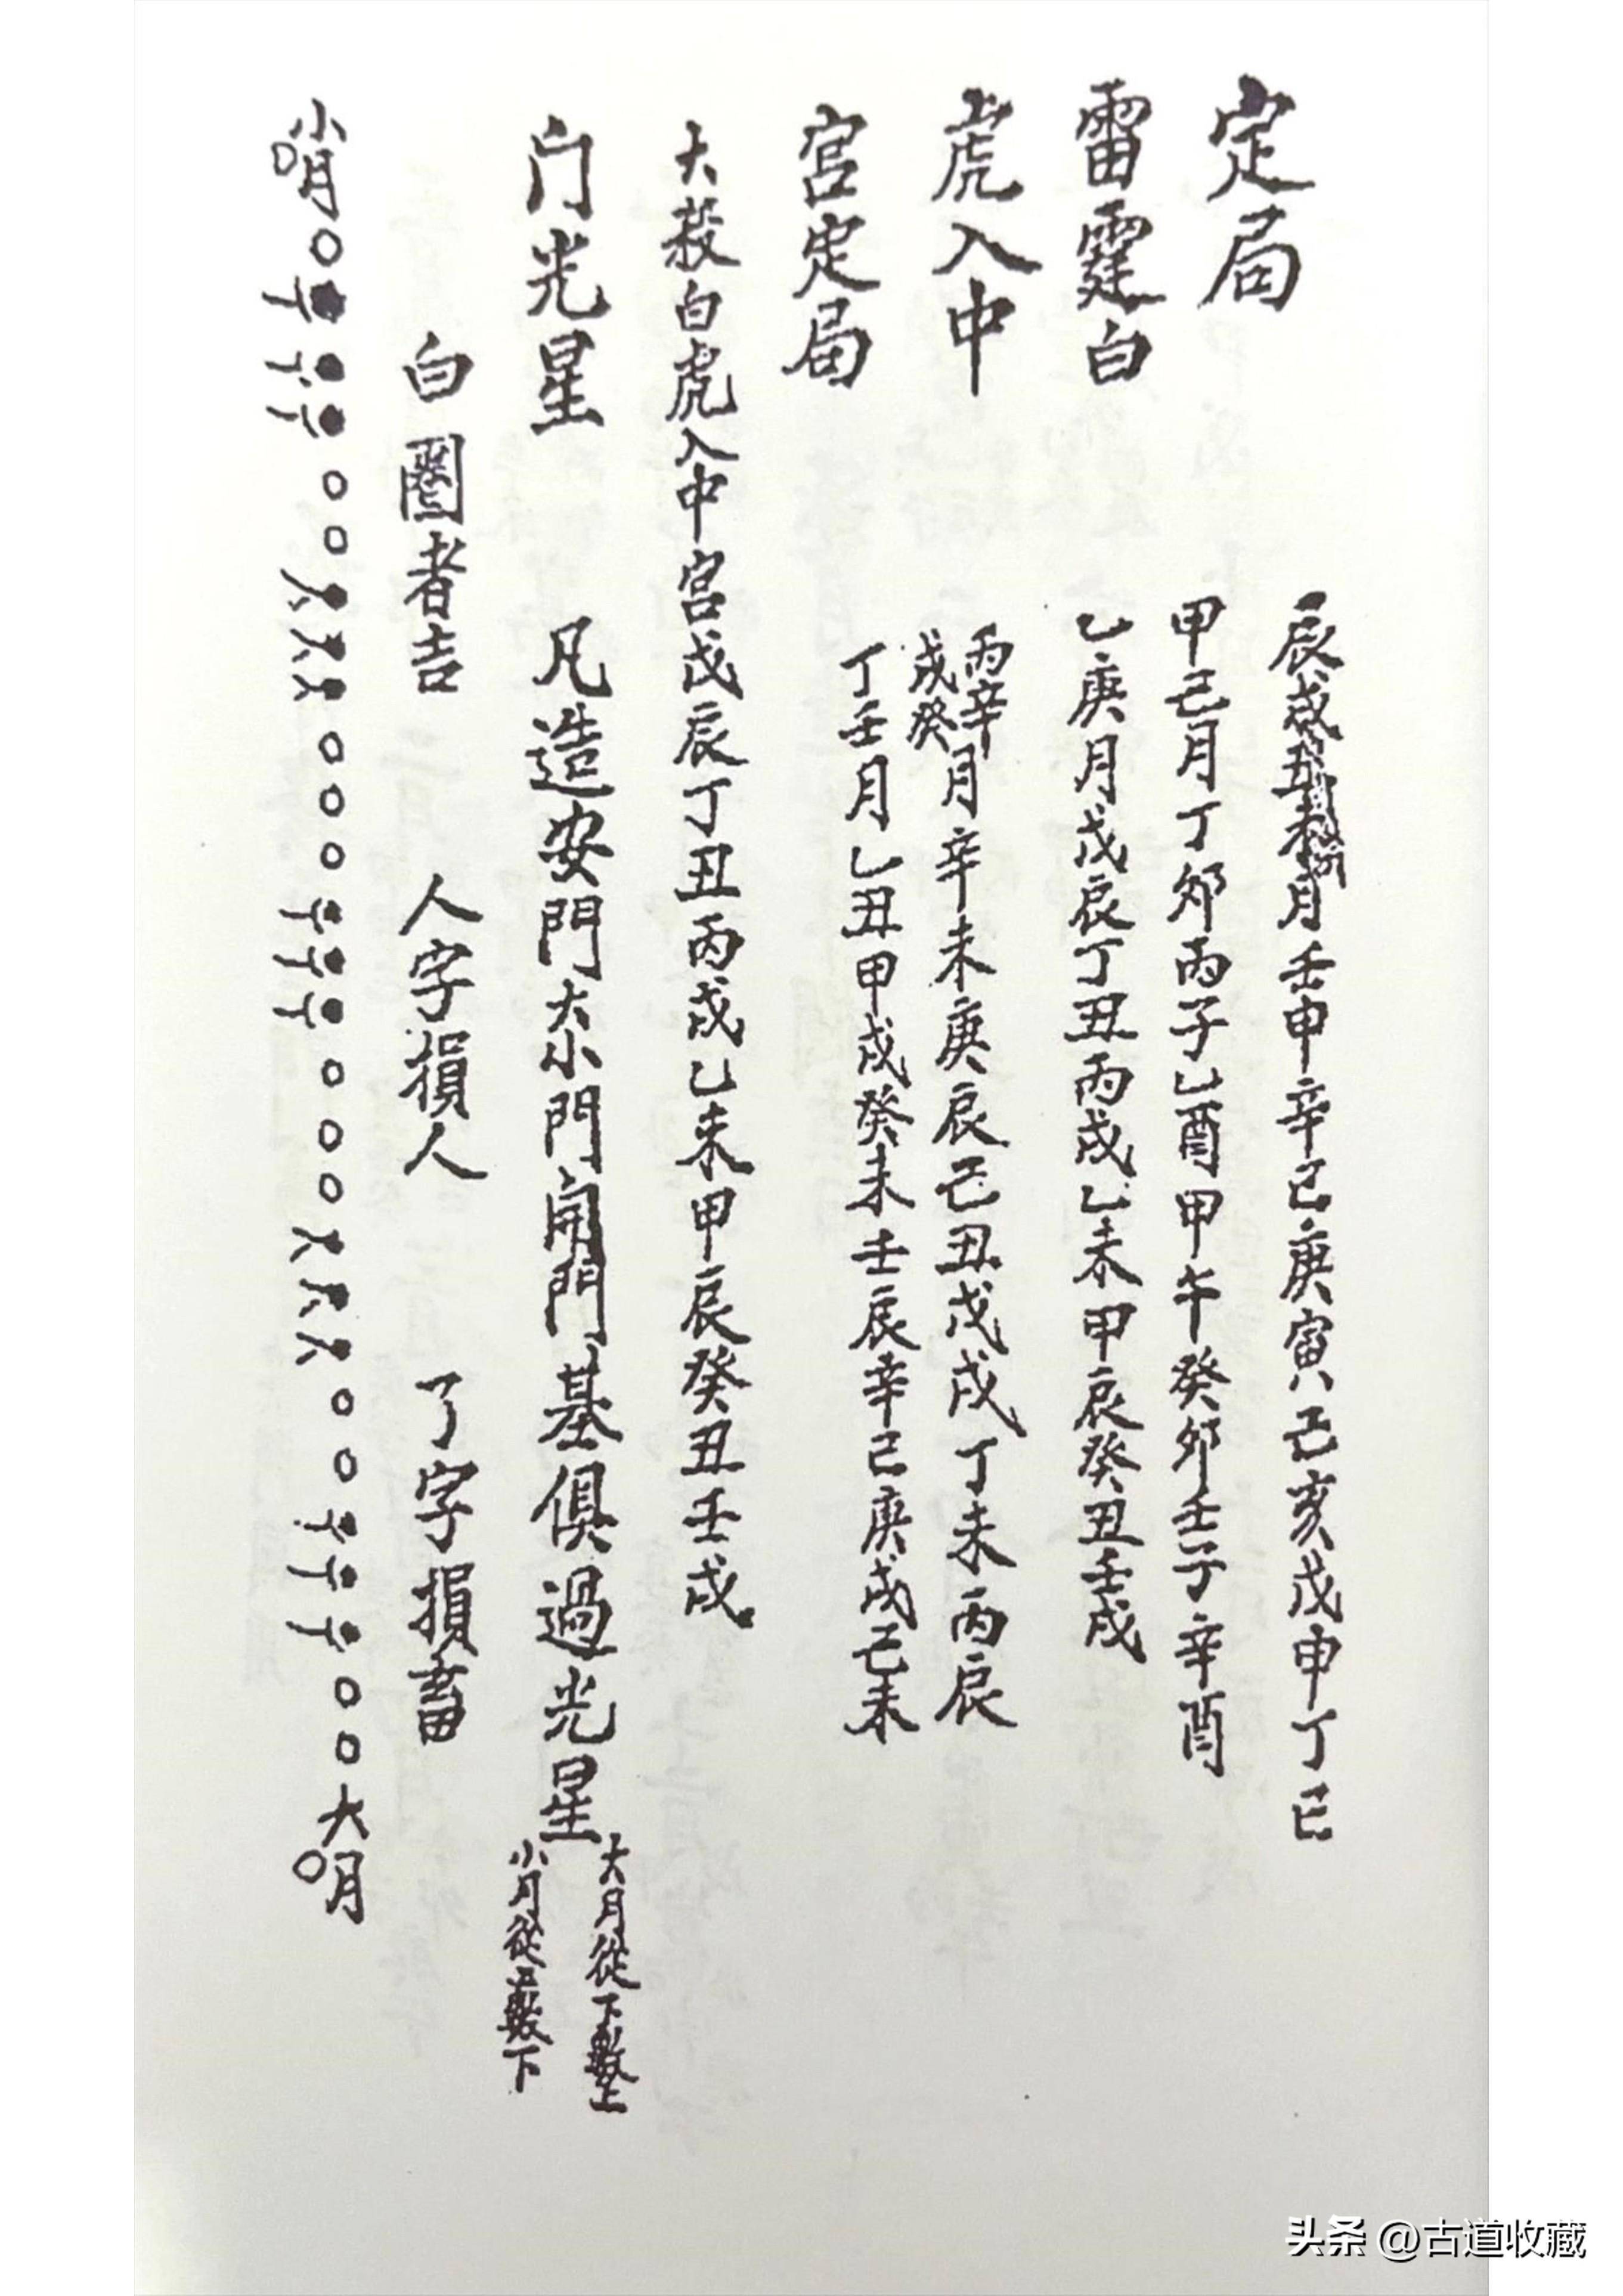 定局
辰戌丑未月壬申辛巳庚寅己亥戊申丁巳
甲己月丁卯丙子乙酉甲午癸卯壬子辛酉
雷霆白
乙庚月戊辰丁丑丙戌乙未甲辰癸丑壬戌
虎入中
丙辛
戊癸
月辛未庚辰己丑戊戌丁未丙辰
宫定局
丁壬月乙丑甲戌癸未壬辰辛巳庚戌己未
大殺白虎入中宫戊辰丁丑丙戌乙未甲辰癸丑壬戌
门光星
凡造安門大小門開門基俱過光星
大月從下數上
小月從上數下
白圈者吉
人字損人
了字損畜
小月
大月
头条 @古道收藏